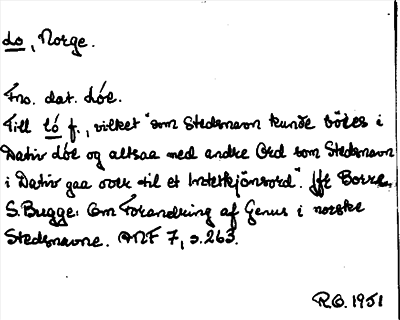 Lo, Norge.
Fno. dat. Lóe.
Till ló f., vilket "som Stedsnavn kunde böies i
Dativ Lóe og altsaa med andre Ord som Stedsnavn
i Dativ gaa over til et Intetkjönsord". Jfr Borre.
S. Bugge: Om Forandring af Genus i norske
Stedsnavne. ANF 7, s. 263.
R.O. 1951